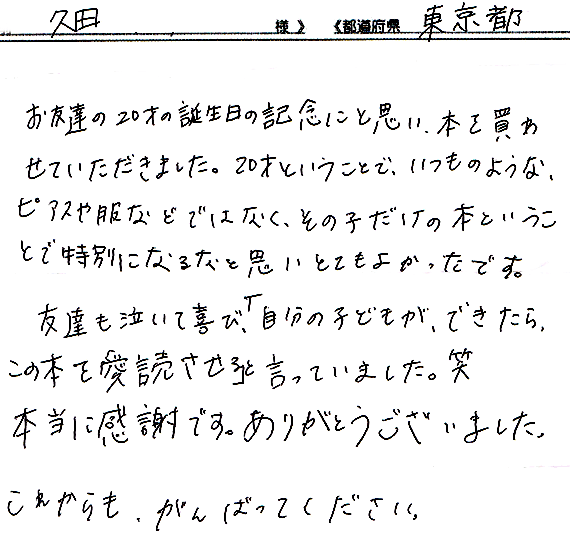 久田 様》 《都道府県 東京都
お友達の20才の誕生日の記念にと思い、本を買わ
せていただきました。20才ということで、いつものような、
ピアスや服などではなく、その子だけの本というこ
とで特別になるなと思いとてもよかったです。
友達も泣いて喜び、「自分の子どもが、できたら、
この本を愛読させる」と言っていました。笑
本当に感謝です。ありがとうございました。
これからも、がんばってください。